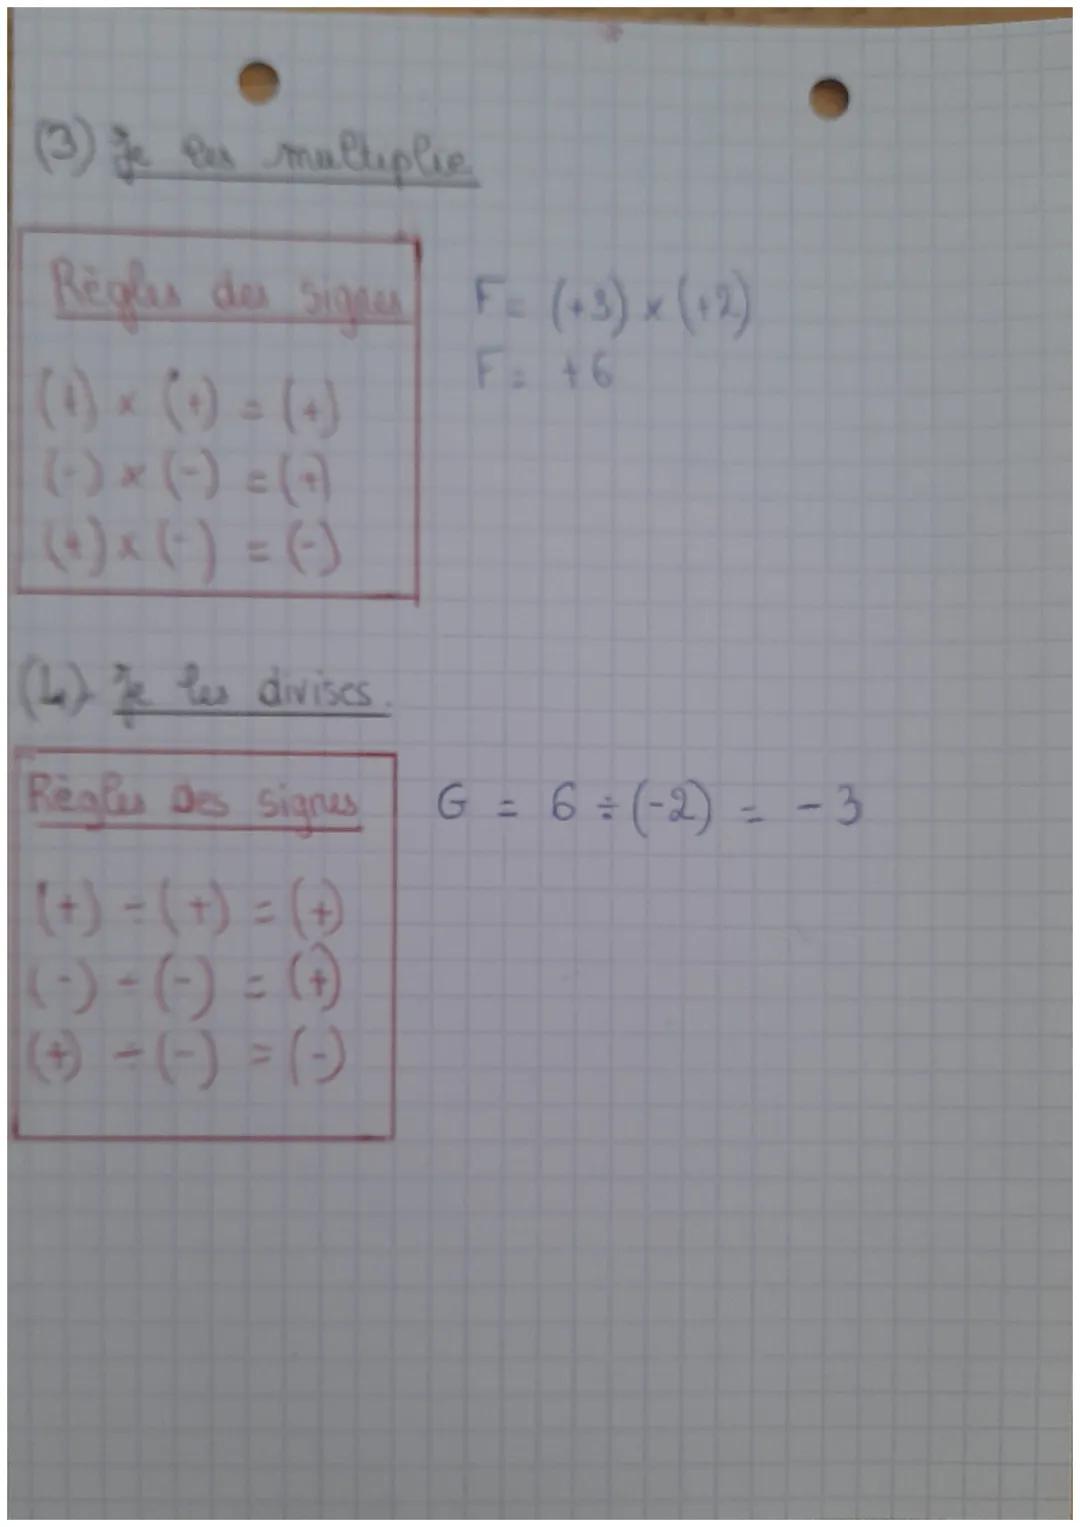 (3) Je les multiplie
Règles des signes
(+) × (+) = (+)
(-) × (-) = (+)
(+) × (-) = (-)
F = (+3) × (+2)
F = +6
(4) Je les divises.
Règles des signes
(+) ÷ (+) = (+)
(-) ÷ (-) = (+)
(+) ÷ (-) = (-)
G = 6 ÷ (-2) = -3